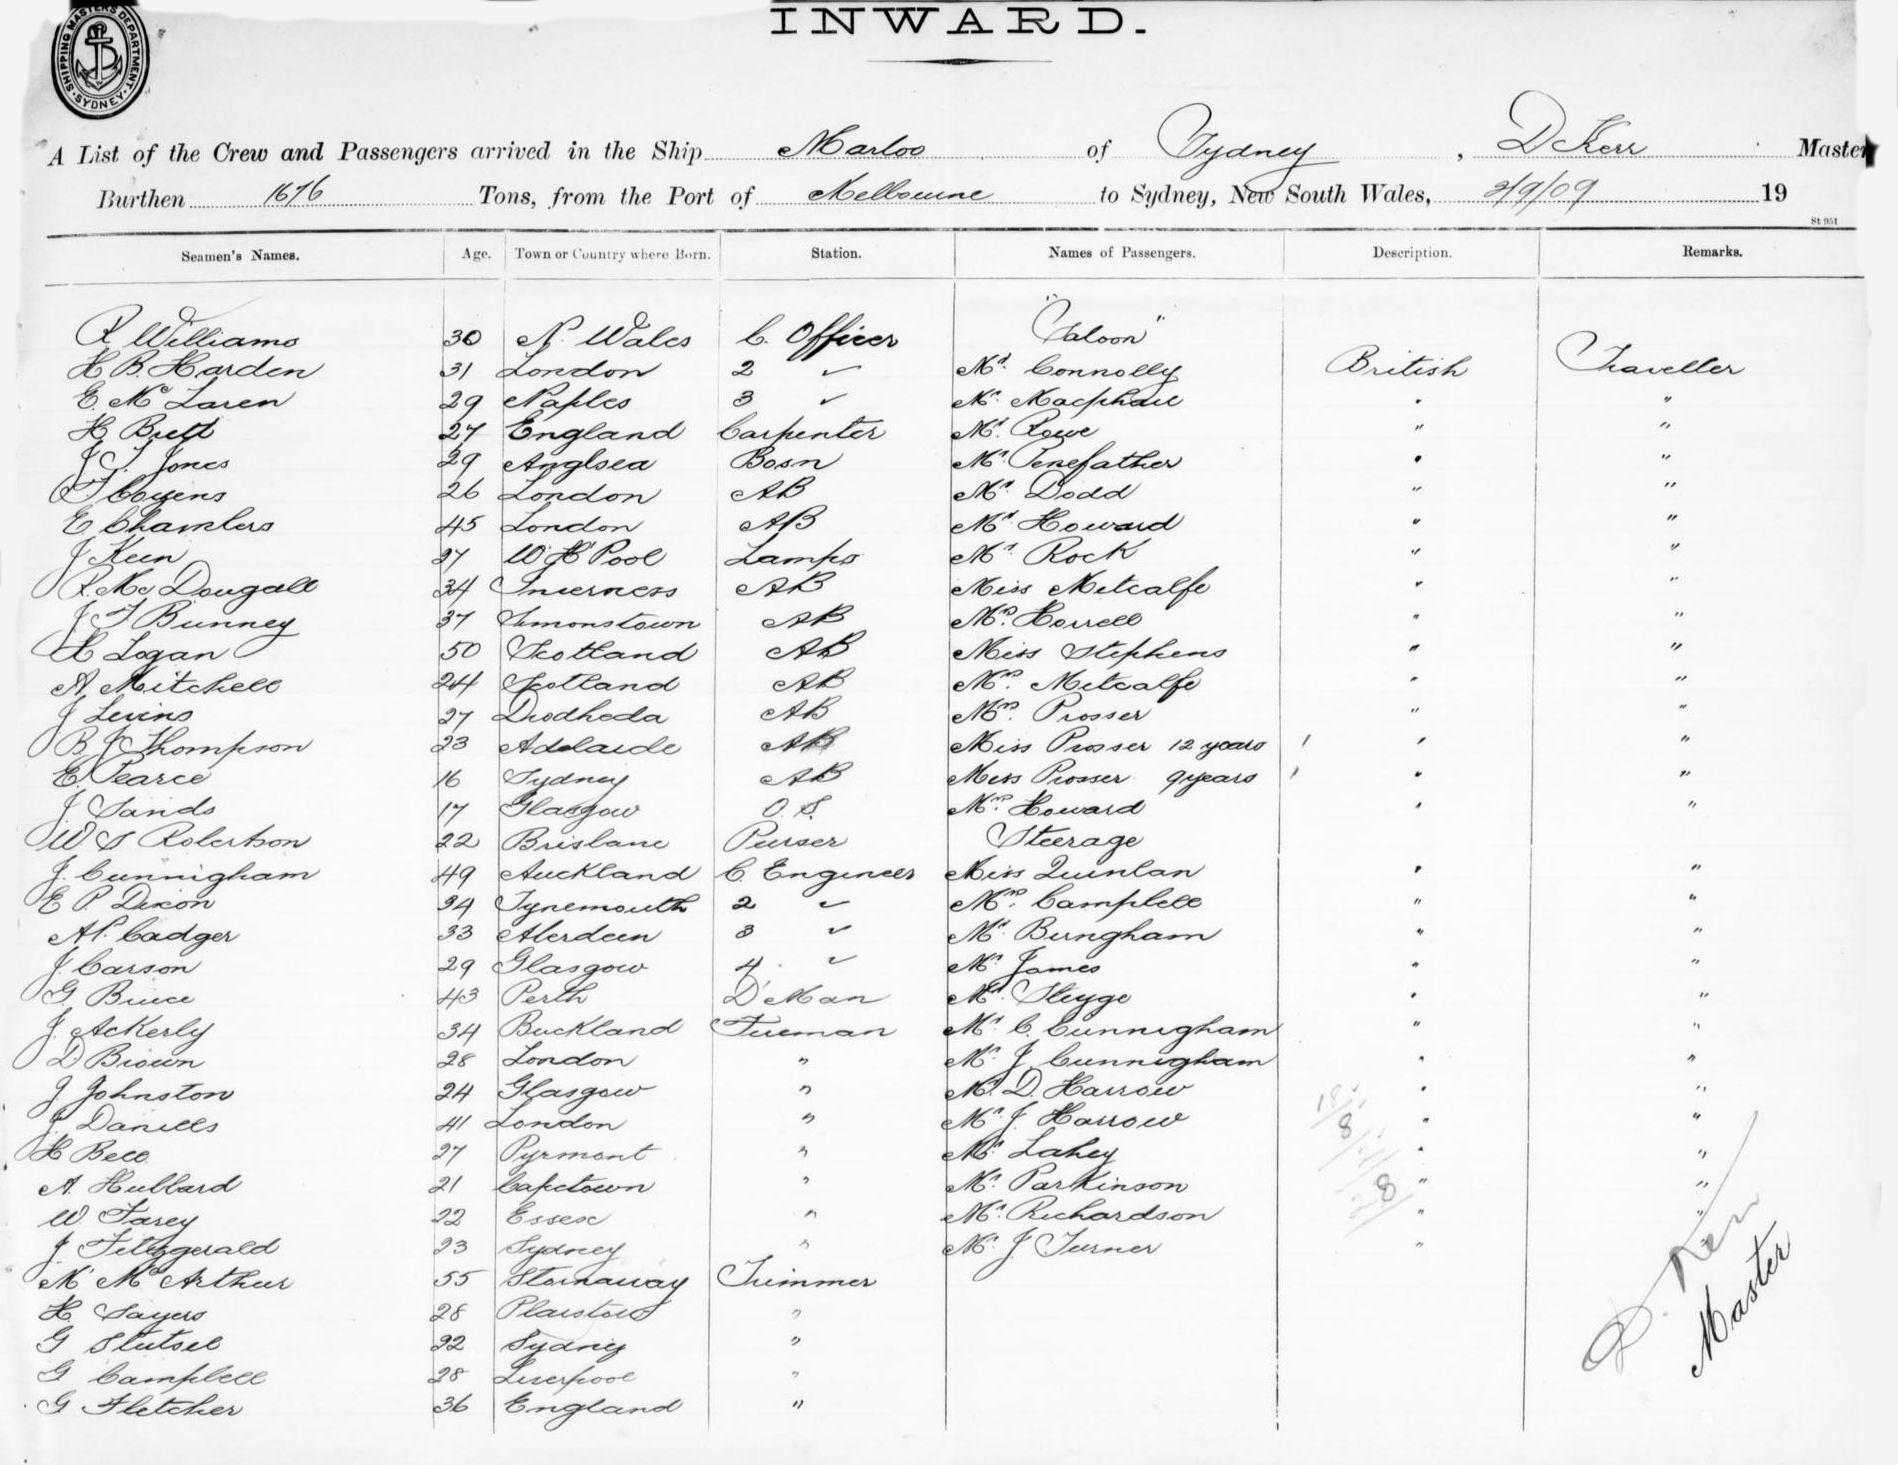 SHIPPING MASTERS DEPARTMENT. SYDNEY.
INWARD.
A List of the Crew and Passengers arrived in the Ship Marloo of Sydney, D Kerr Master
Burthen 1676 Tons, from the Port of Melbourne to Sydney, New South Wales, 2/9/09 19
St 951
Seamen's Names. Age. Town or Country where Born. Station. Names of Passengers. Description. Remarks.
R Williams 30 N. Wales C. Officer "Saloon"
H B. Harden 31 London 2 " Mr. Connolly British Traveller
E. Mc Laren 29 Naples 3 " Mr. Macphail " "
H Brett 27 England Carpenter Mr. Rowe " "
J T. Jones 29 Anglsea Bosn Mr. Penefather " "
T Coyens 26 London AB Mr. Dodd " "
E Chamlers 45 London AB Mr. Howard " "
J Keen 27 W'H'Pool Lamps Mr. Rock " "
R. Mc Dougall 34 Inverness AB Miss Metcalfe " "
J T Bunney 37 Simonstown AB Mrs. Horrell " "
H Logan 50 Scotland AB Miss Stephens " "
A. Mitchell 24 Scotland AB Mrs. Metcalfe " "
J Levins 27 Drodheda AB Mrs. Prosser " "
B J Thompson 23 Adelaide AB Miss Prosser 12 years " "
E. Pearce 16 Sydney AB Miss Prosser 9 years " "
J. Sands 17 Glasgow O.S. Mrs. Howard " "
W S Robertson 22 Brisbane Purser Steerage
J. Cunnigham 49 Auckland C. Engineer Miss Quinlan " "
E P. Dixon 34 Tynemouth 2 " Mrs. Campbell " "
Al. Cadger 33 Aberdeen 3 " Mr. Birngham " "
J. Carson 29 Glasgow 4. " Mr. James " "
G. Bruce 43 Perth D'Man Mr. Steyge " "
J. Ackerly 34 Buckland Fireman Mr. C. Cunnigham " "
D Brown 28 London " Mr. J Cunnigham " "
J Johnston 24 Glasgow " Mr. D. Harrow " "
J. Daniels 41 London " Mr. J. Harrow " "
H Bell 27 Pyrmont " Mr. Lahey " "
A. Hubbard 21 Capetown " Mr. Parkinson " "
W Farey 22 Essex " Mr. Richardson " "
J. Fitzgerald 23 Sydney " Mr. J Turner "
M' Mc Arthur 55 Stornaway Trimmer
H. Sayers 28 Plaistow "
G Stutsel 22 Sydney "
G Campbell 28 Liverpool "
G Fletcher 36 England "
8
8
D. Kerr
Master